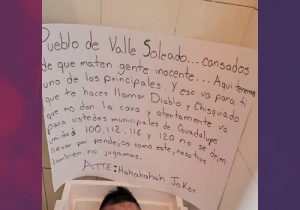 Pueblo de Valle Soleado... cansados
de que maten gente inocente... Aqui tenemos
uno de los principales. Y eso va para ti
que te haces llamar Diablo y Chisguiado
que no dan la cara y atentamente va
para ustedes municipales de Guadalupe
unidad 100, 112, 116 y 120 no se dejen
llevar por pendejos como este, nosotros
tambien no jugamos.
ATTE: Hahahahah Joker